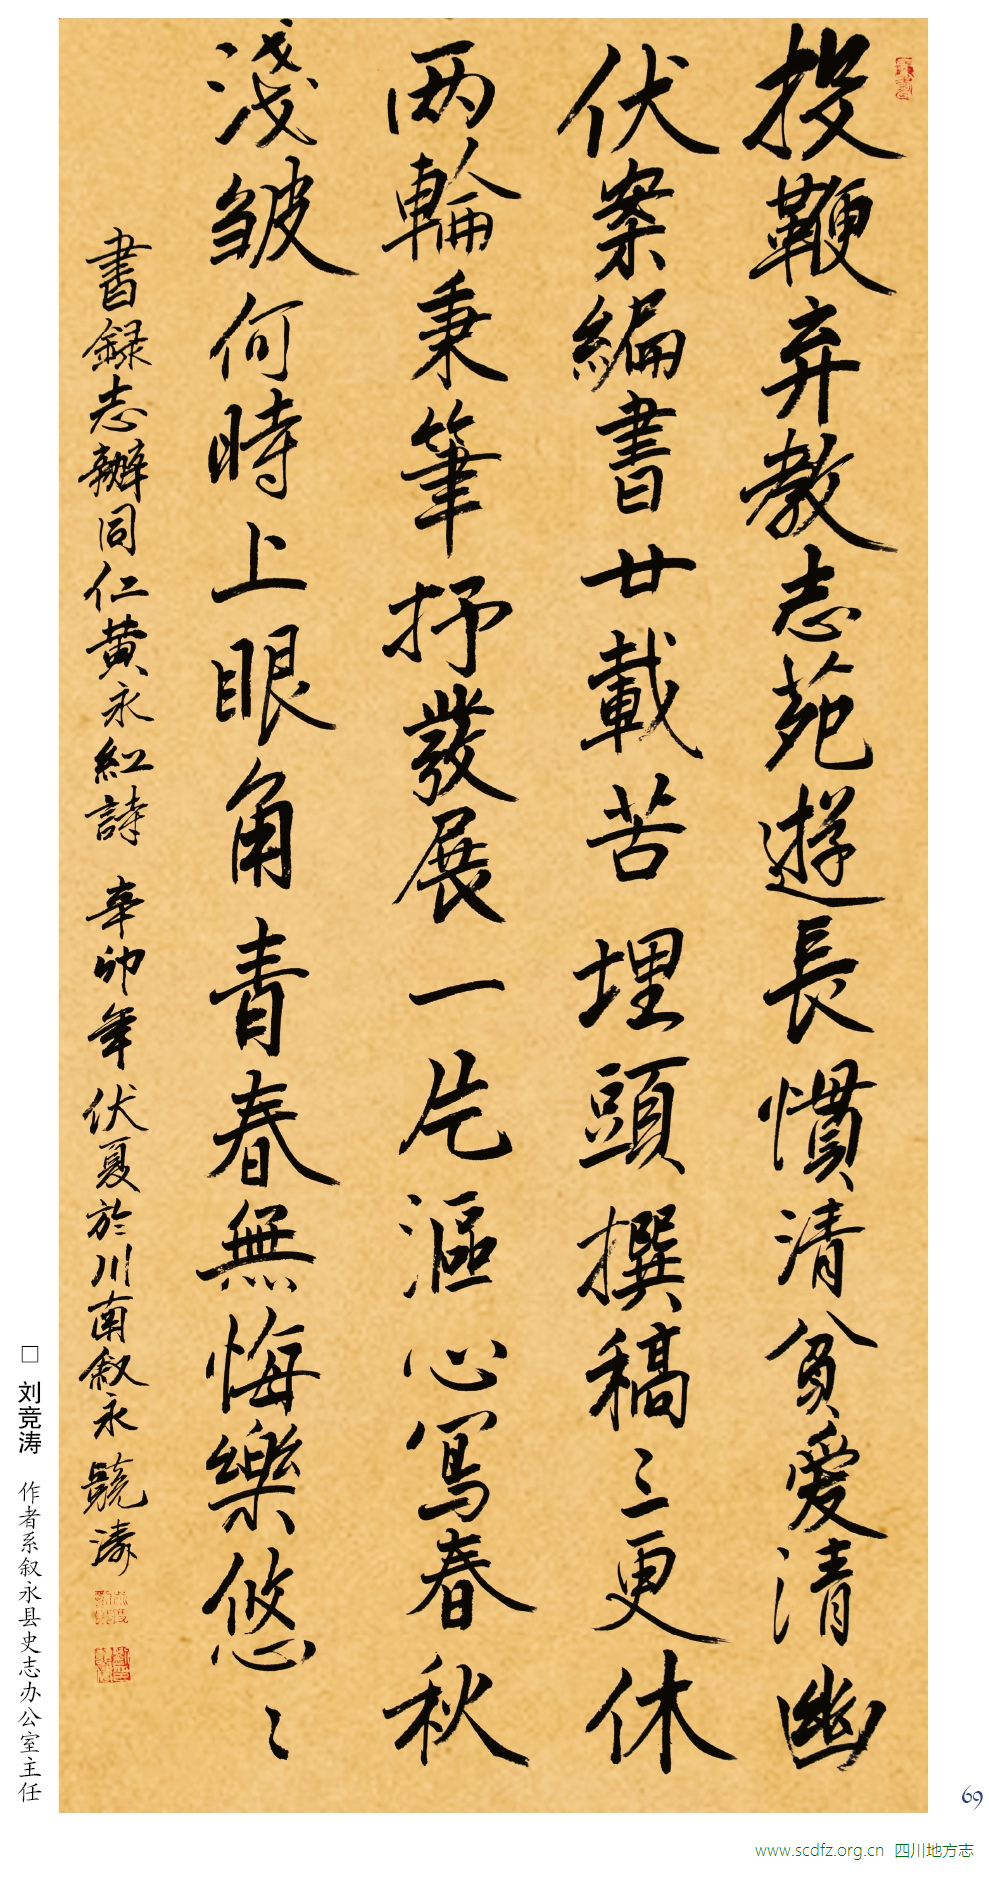 投鞭弃教志苑遊長慣清貧愛清幽
伏案編書廿載苦埋頭撰稿三更休
两輪秉筆抒發展一片漚心寫春秋
淺皱何時上眼角青春無悔樂悠〻
書録志辦同仁黄永紅詩 辛卯年伏夏於川南叙永 競涛
□ 刘竞涛 作者系叙永县史志办公室主任
69
www.scdfz.org.cn 四川地方志